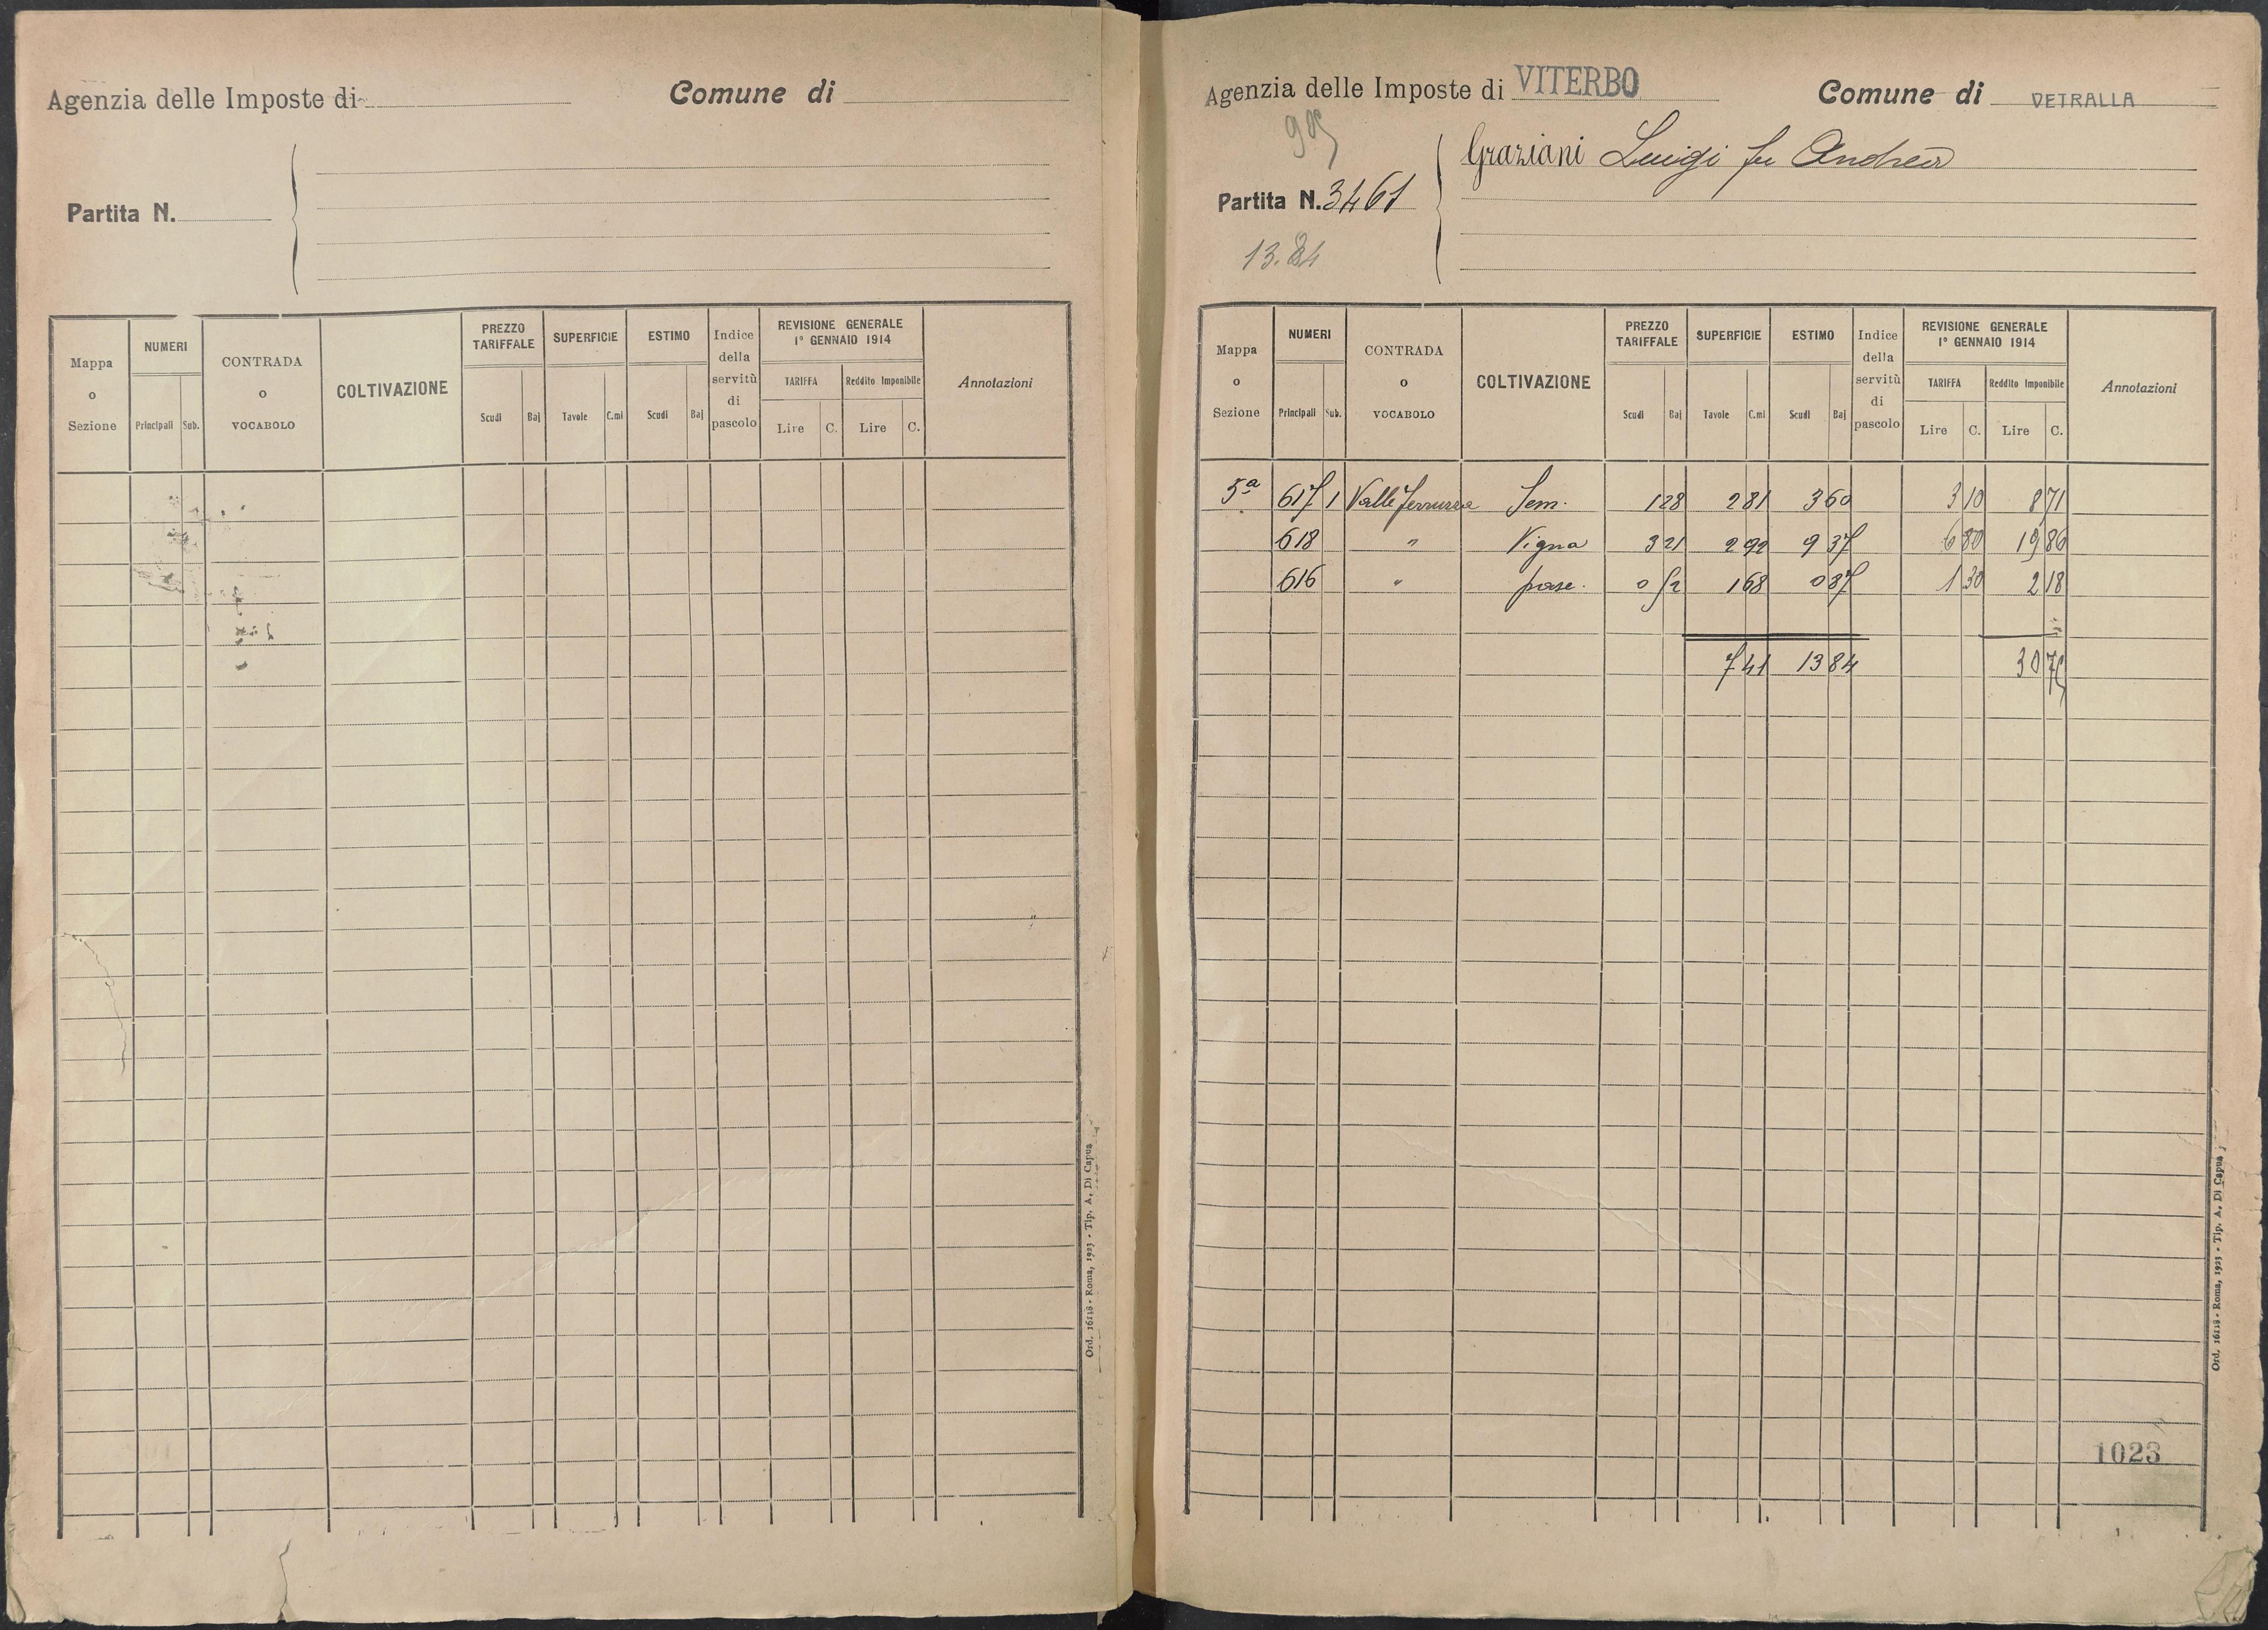 Agenzia delle Imposte di
Comune di
Partita N.
Mappa o Sezione
NUMERI
Principali Sub.
CONTRADA o VOCABOLO
COLTIVAZIONE
PREZZO TARIFFALE
Scudi Baj
SUPERFICIE
Tavole C.mi
ESTIMO
Scudi Baj
Indice della servitù di pascolo
REVISIONE GENERALE 1° GENNAIO 1914
TARIFFA Reddito Imponibile
Lire C. Lire C.
Annotazioni
Ord. 16118 - Roma, 1923 - Tip. A. Di Capua
Agenzia delle Imposte di VITERBO
Comune di VETRALLA
Graziani Luigi fu Andrea
Partita N. 3461
13.84
Mappa o Sezione
NUMERI
Principali Sub.
CONTRADA o VOCABOLO
COLTIVAZIONE
PREZZO TARIFFALE
Scudi Baj
SUPERFICIE
Tavole C.mi
ESTIMO
Scudi Baj
Indice della servitù di pascolo
REVISIONE GENERALE 1° GENNAIO 1914
TARIFFA Reddito Imponibile
Lire C. Lire C.
Annotazioni
5a 617 1 Valle Sem. 1 28 2 81 3 60 3 10 8 71
618 " Vigna 3 21 2 92 9 37 6 80 19 86
616 " pasc. 0 52 1 68 0 87 1 30 2 18
7 41 13 84 30 75
1023
Ord. 16118 - Roma, 1923 - Tip. A. Di Capua